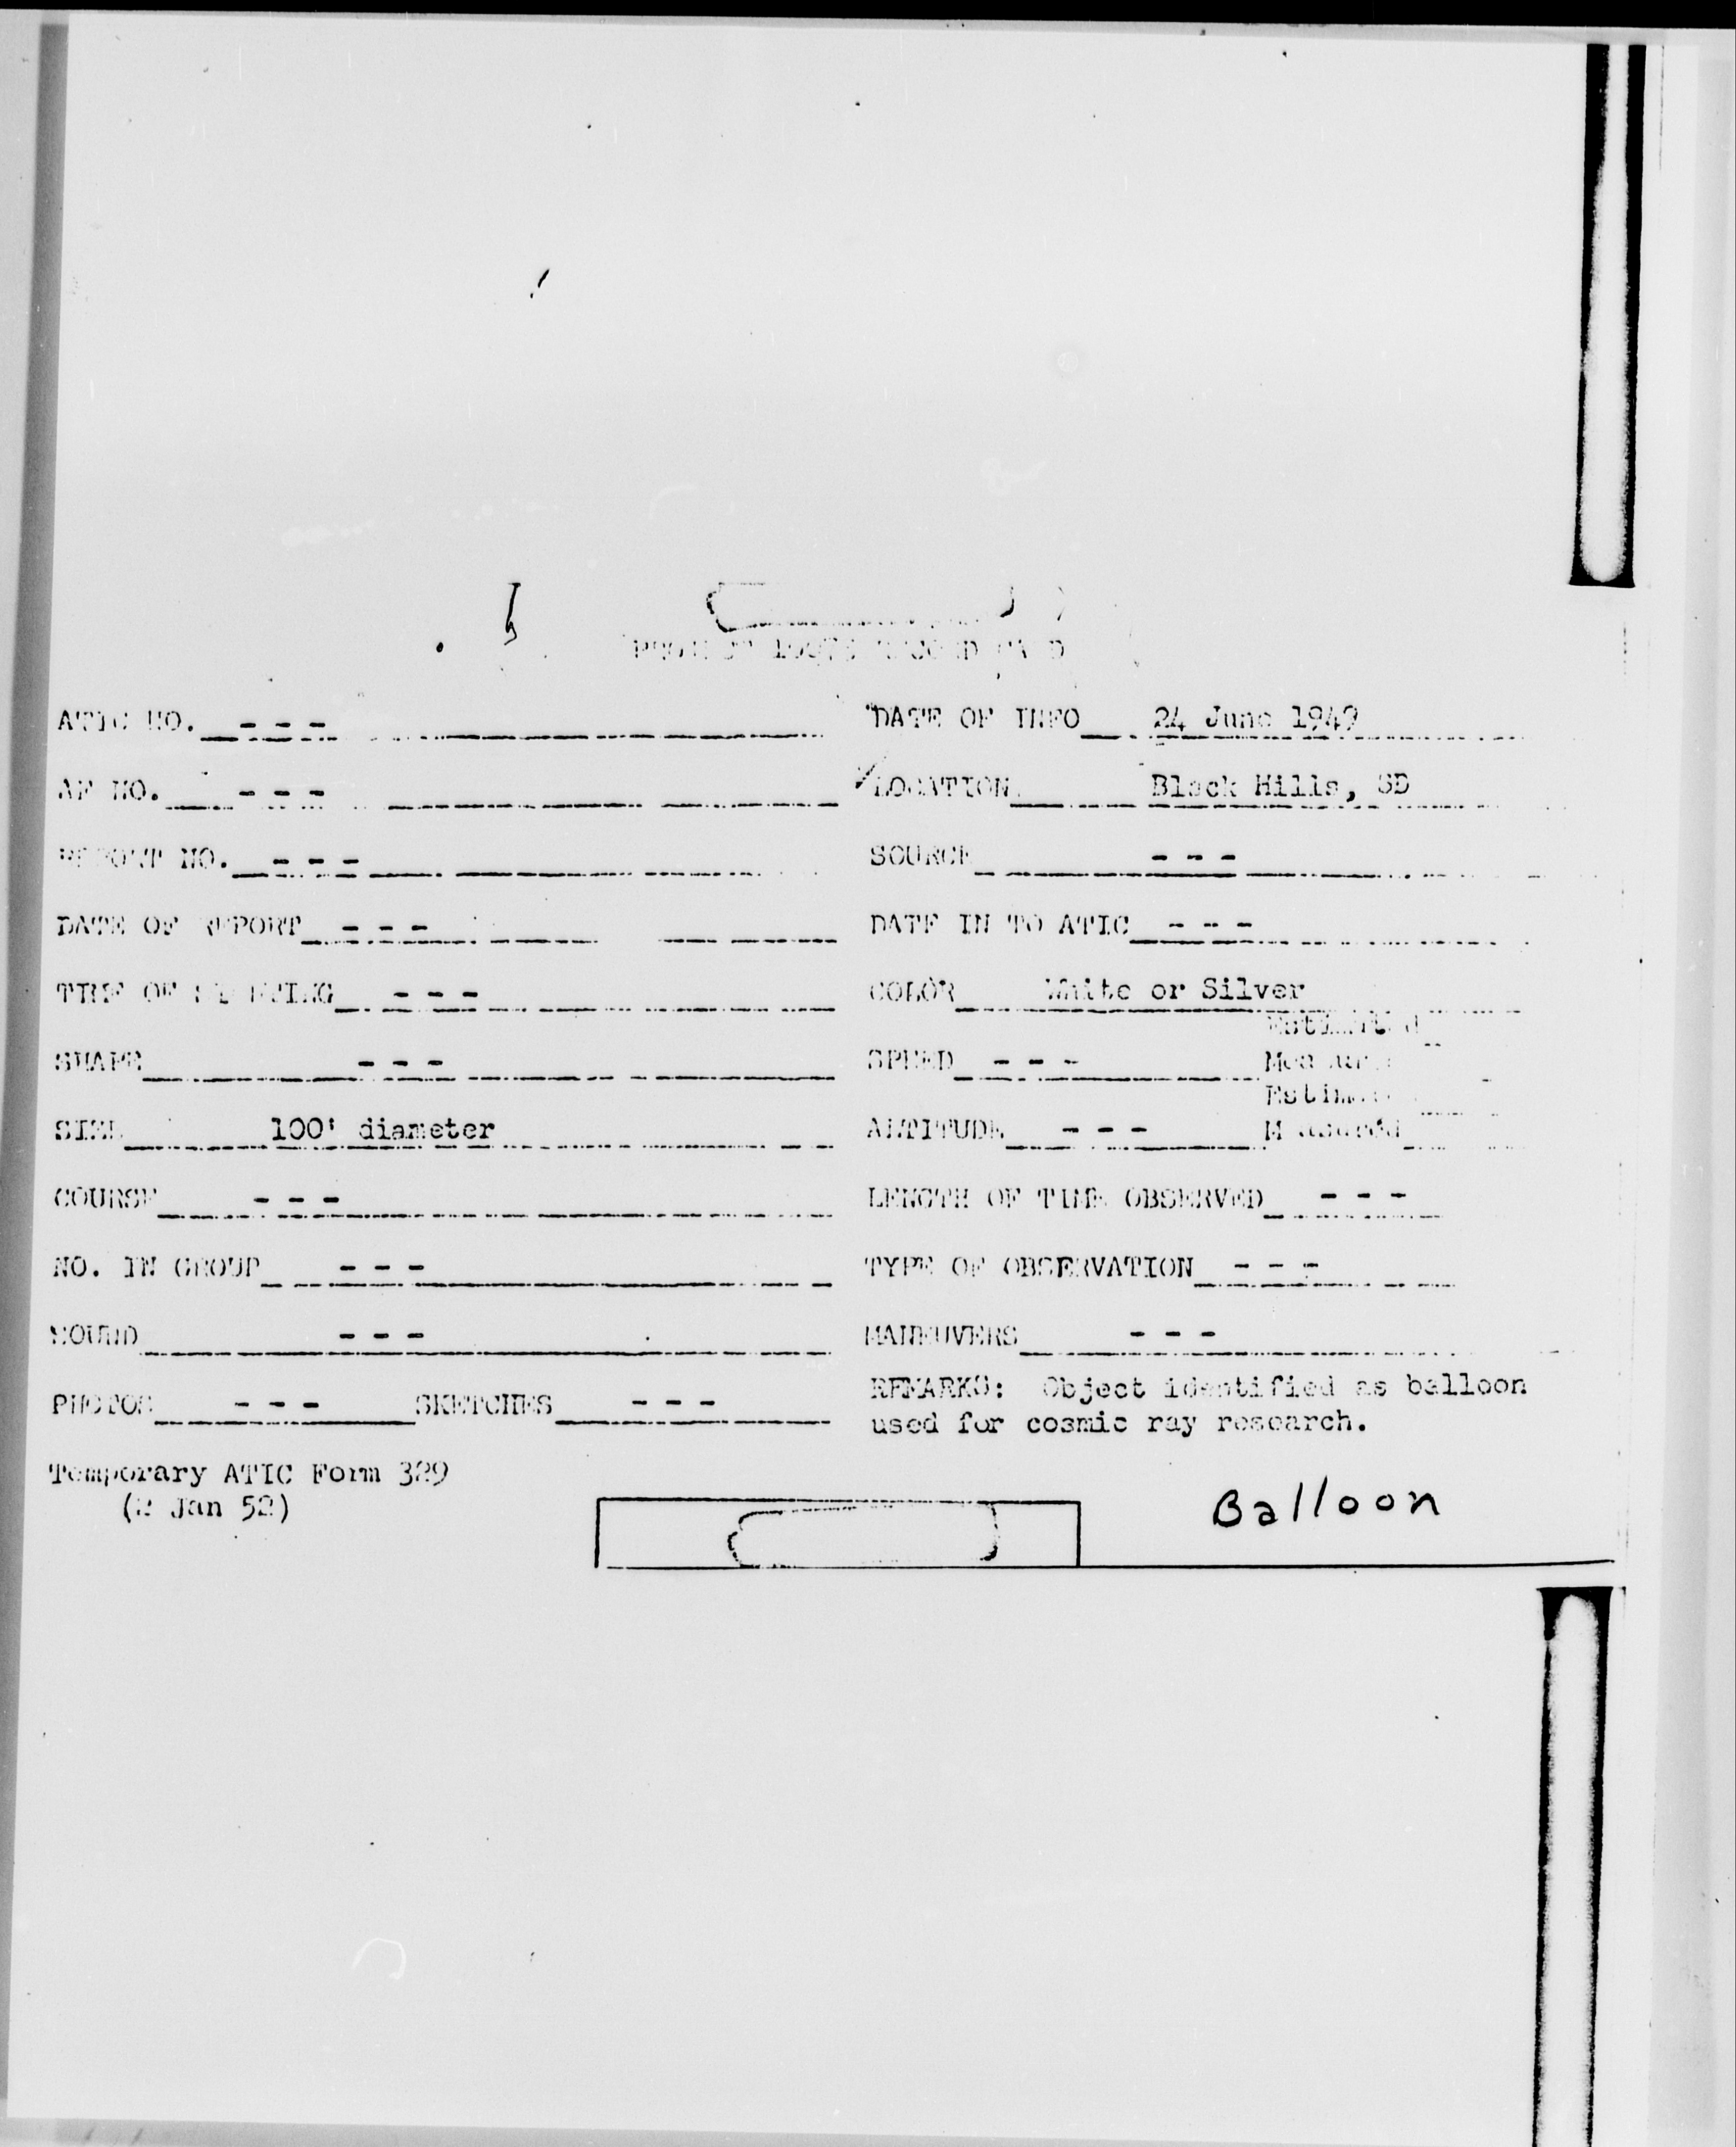 PROJECT 10073 RECORD CARD
ATIC NO. - - - DATE OF INFO 24 June 1949
AF NO. - - - LOCATION Black Hills, SD
REPORT NO. - - - SOURCE - - -
DATE OF REPORT - - - DATE IN TO ATIC - - -
TIME OF SIGHTING - - - COLOR White or Silver
Estimated
SHAPE - - - SPEED - - - Measured
Estimated
SIZE 100' diameter ALTITUDE - - - Measured
COURSE - - - LENGTH OF TIME OBSERVED - - -
NO. IN GROUP - - - TYPE OF OBSERVATION - - -
SOUND - - - MANEUVERS - - -
PHOTOS - - - SKETCHES - - - REMARKS: Object identified as balloon
used for cosmic ray research.
Temporary ATIC Form 329
(2 Jan 52)
Balloon